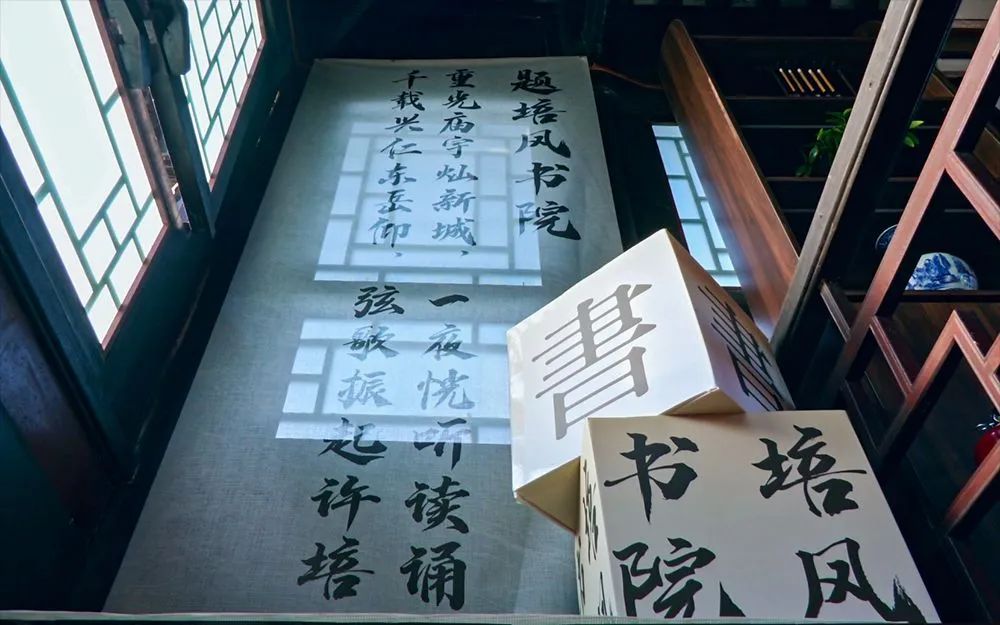 题培凤书院
重光庙宇灿新城，一夜恍听读诵
千载兴仁东岳仰，弦歌振起许培
書
書
培凤
书院